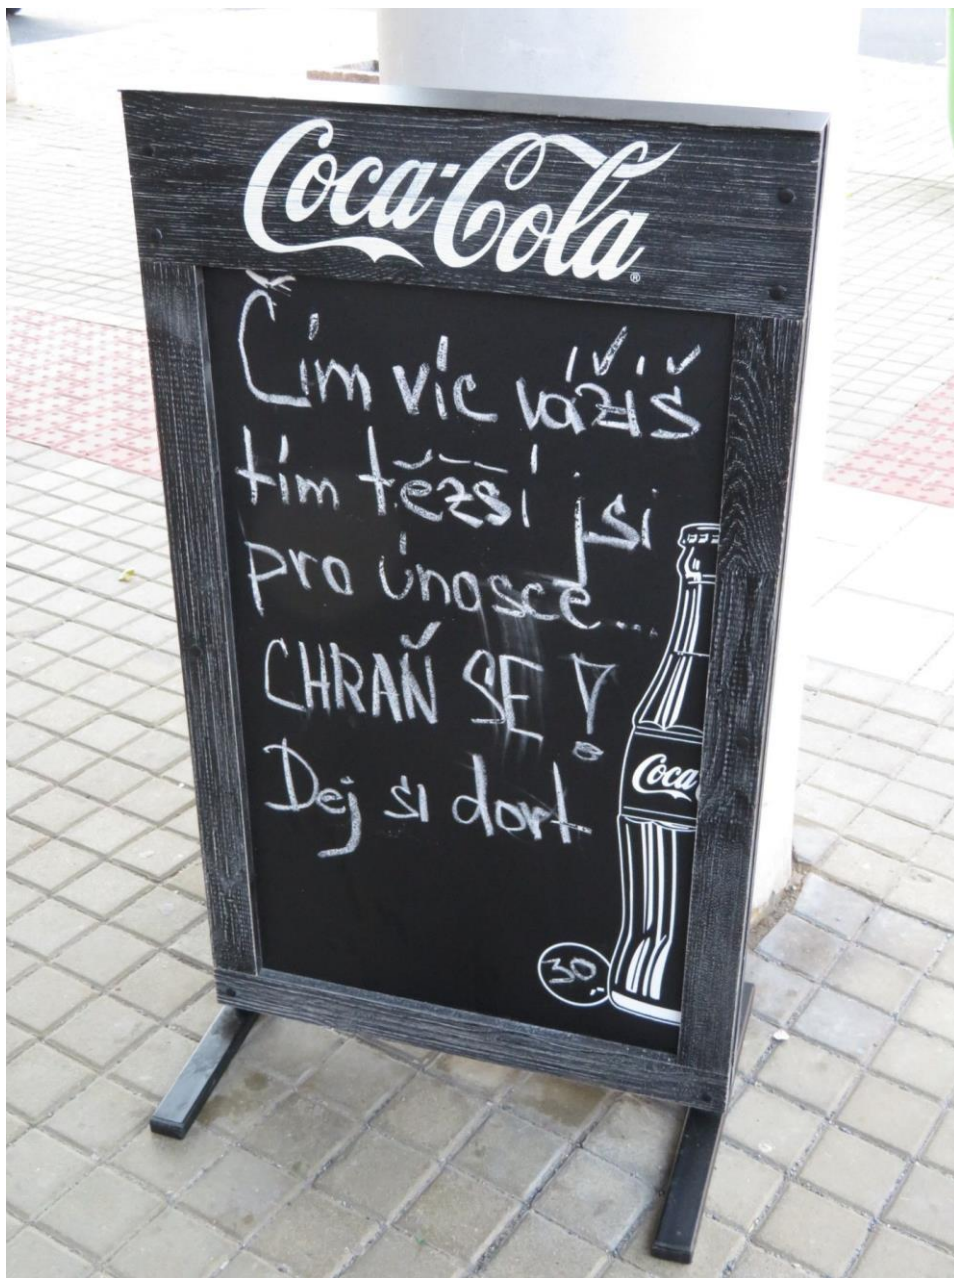 Coca-Cola®
Čím víc vážíš
tím těžší jsi
pro únosce...
CHRAŇ SE!
Dej si dort
Coca
30,-